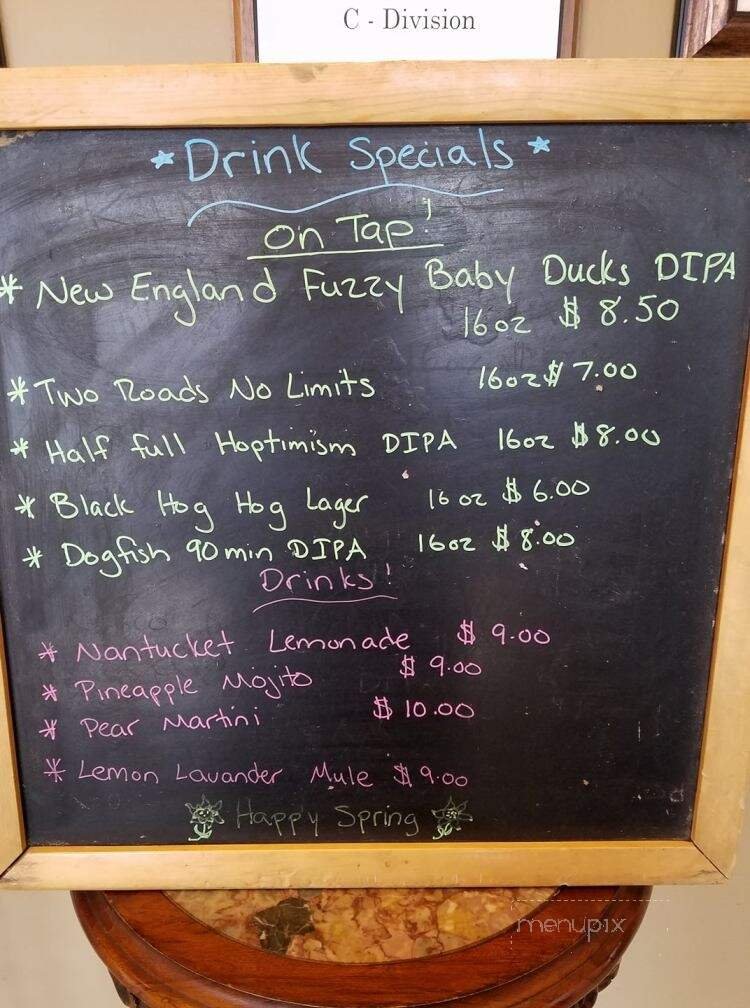 C - Division
*Drink Specials*
On Tap!
* New England Fuzzy Baby Ducks DIPA
16oz $ 8.50
* Two Roads No Limits 16oz $ 7.00
* Half full Hoptimism DIPA 16oz $8.00
* Black Hog Hog Lager 16 oz $ 6.00
* Dogfish 90 min DIPA 16oz $ 8.00
Drinks!
* Nantucket Lemonade $ 9.00
* Pineapple Mojito $ 9.00
* Pear Martini $ 10.00
* Lemon Lavander Mule $ 9.00
Happy Spring
menupix